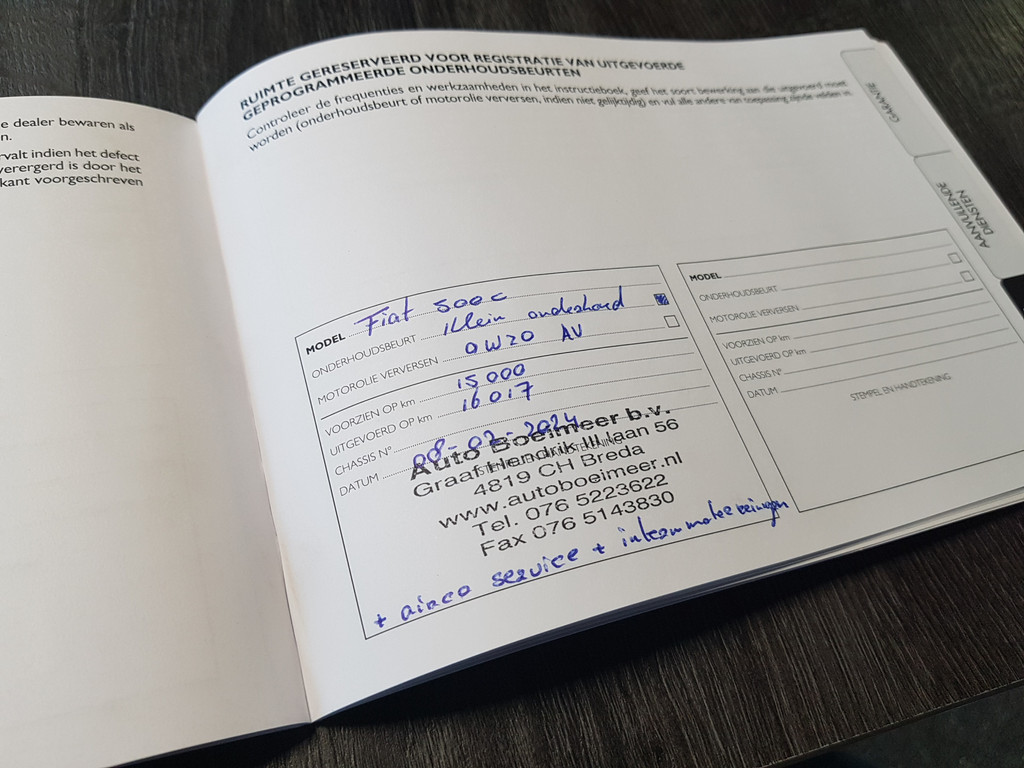 e dealer bewaren als
n.
rvalt indien het defect
verergerd is door het
kant voorgeschreven
RUIMTE GERESERVEERD VOOR REGISTRATIE VAN UITGEVOERDE
GEPROGRAMMEERDE ONDERHOUDSBEURTEN
Controleer de frequenties en werkzaamheden in het instructieboek, geef het soort bewerking aan die uitgevoerd moet
worden (onderhoudsbeurt of motorolie verversen, indien niet gelijktijdig) en vul alle andere van toepassing zijnde velden in
GARANTIE
AANVULLENDE
DIENSTEN
MODEL Fiat 500c
ONDERHOUDSBEURT Klein onderhoud
MOTOROLIE VERVERSEN 0W20 AV
VOORZIEN OP km 15000
UITGEVOERD OP km 16017
CHASSIS N°
DATUM 08-02-2024
Auto Boeimeer b.v.
Graaf Hendrik III laan 56
4819 CH Breda
www.autoboeimeer.nl
Tel. 076 5223622
Fax 076 5143830
+ airco service + intern motorreinigen
MODEL
ONDERHOUDSBEURT
MOTOROLIE VERVERSEN
VOORZIEN OP km
UITGEVOERD OP km
CHASSIS N°
DATUM
STEMPEL EN HANDTEKENING